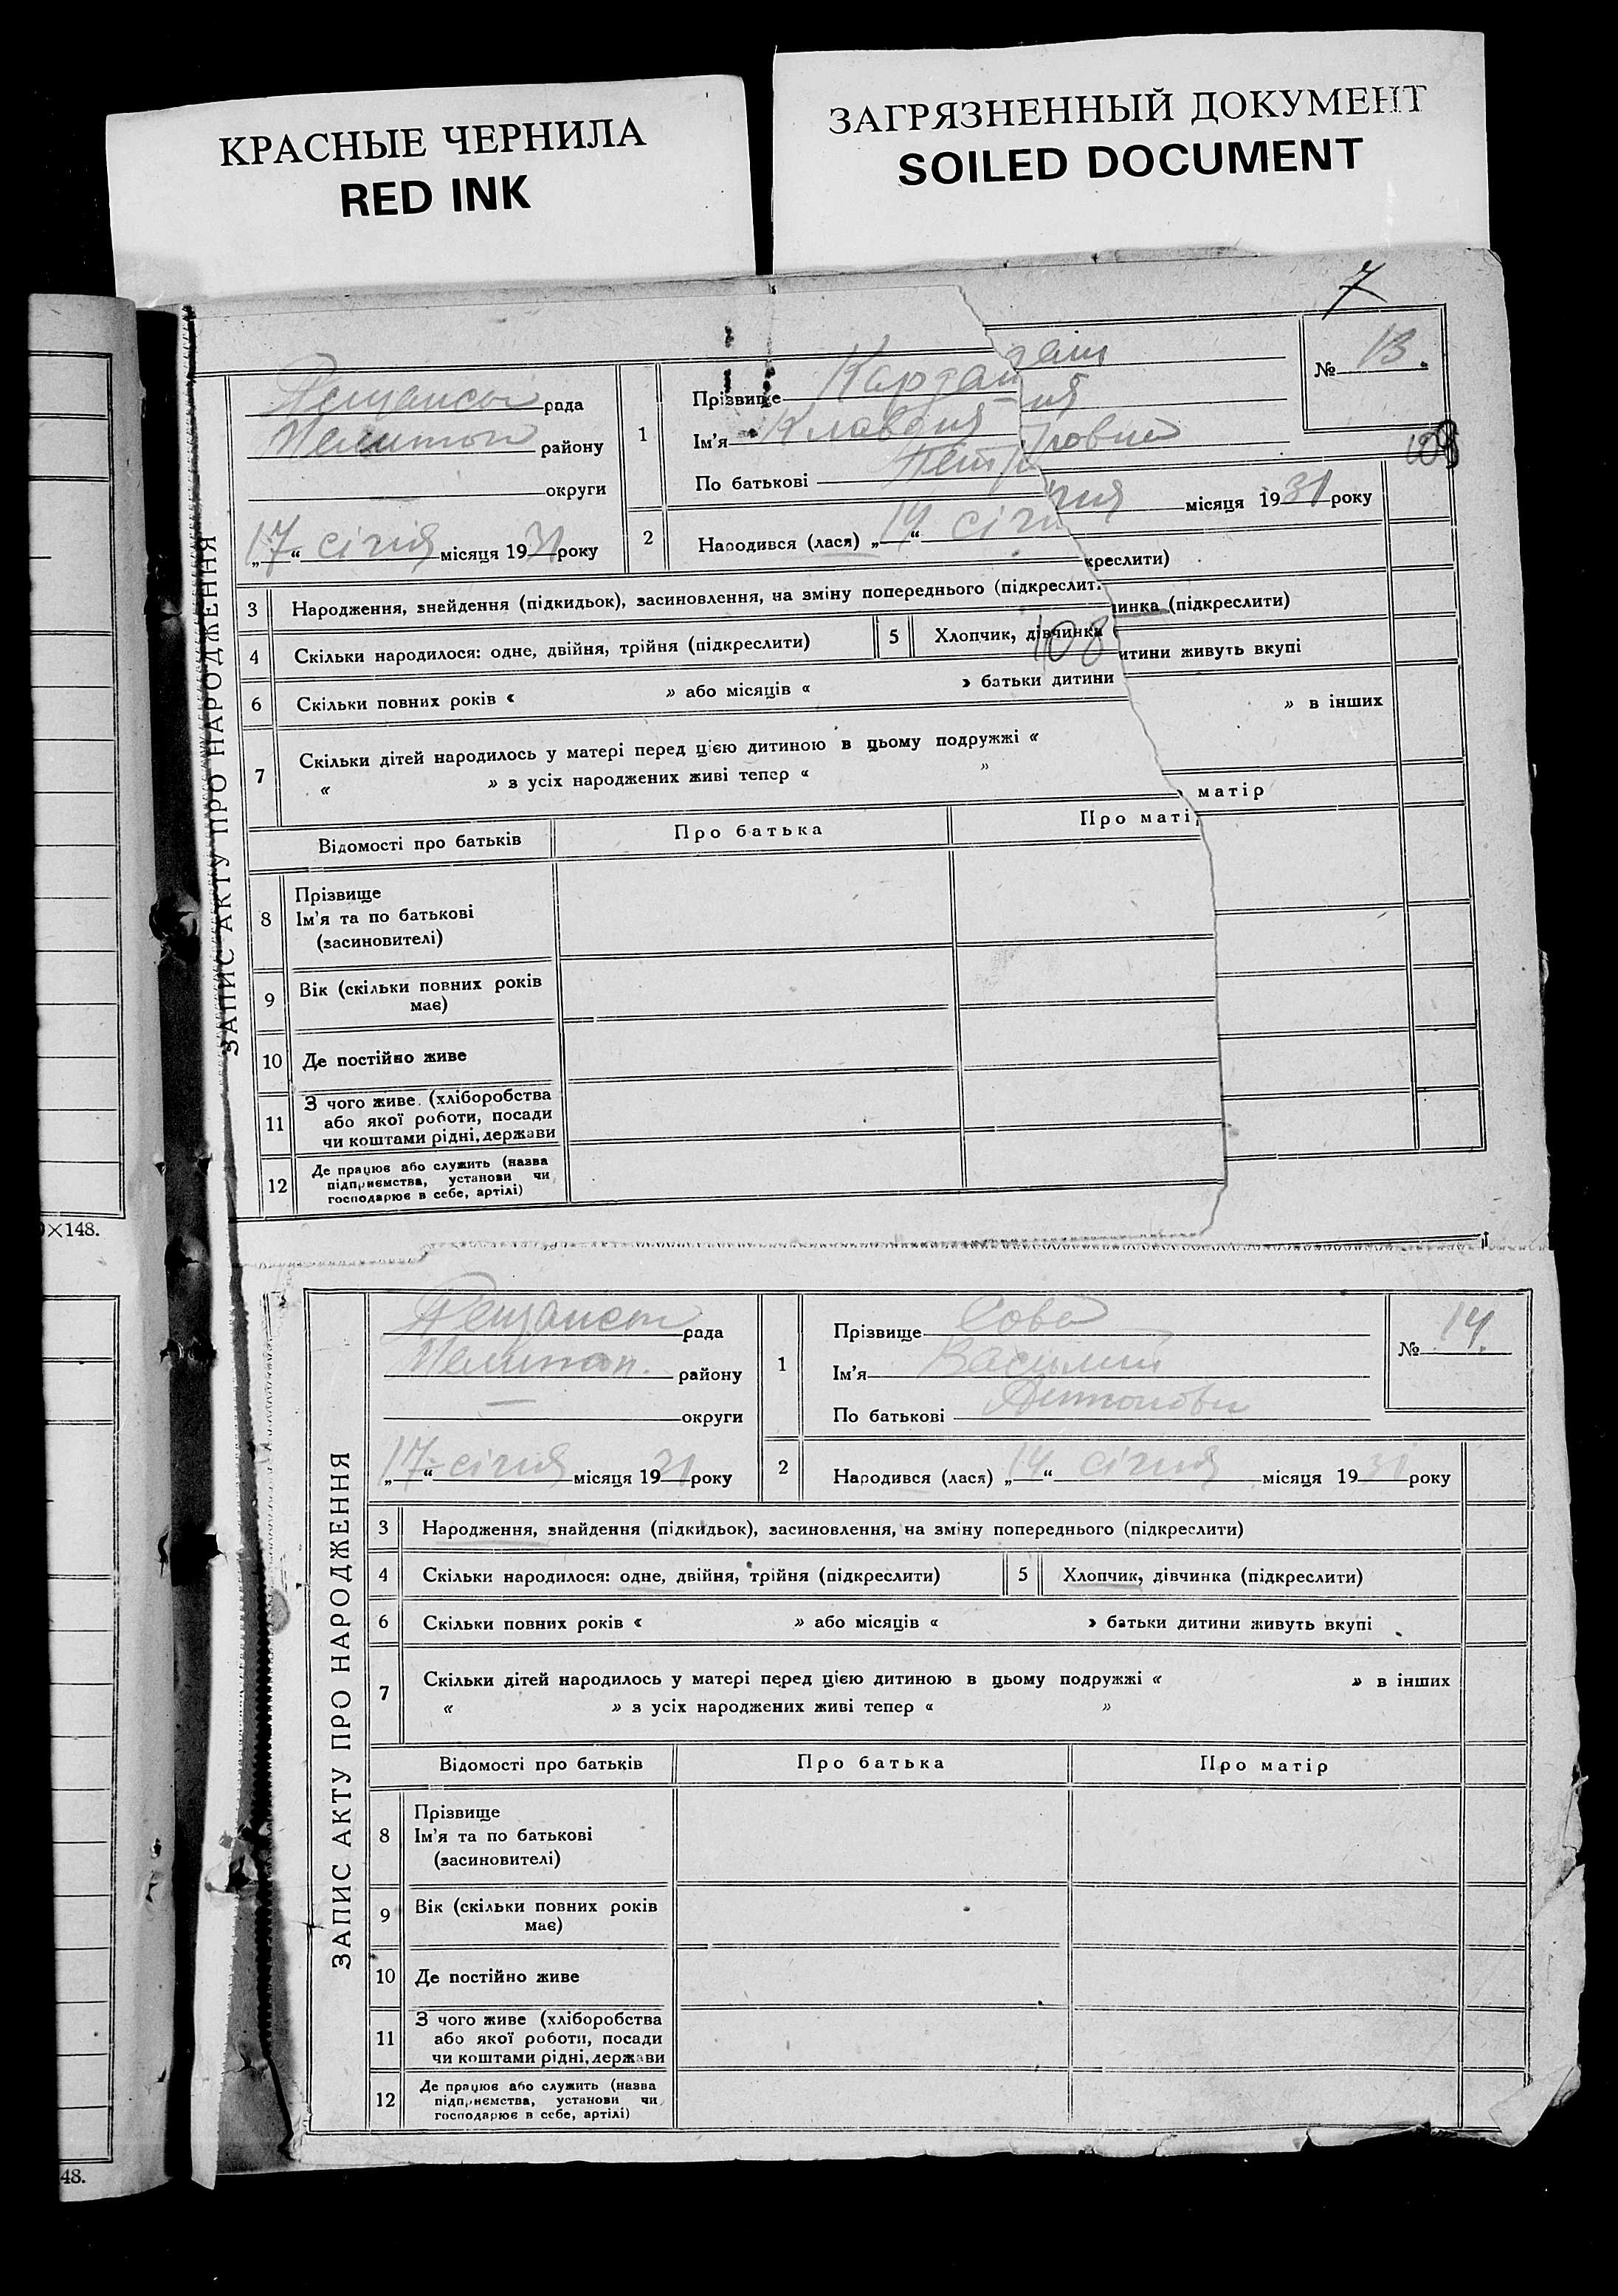 КРАСНЫЕ ЧЕРНИЛА
RED INK
ЗАГРЯЗНЕННЫЙ ДОКУМЕНТ
SOILED DOCUMENT
7
ЗАПИС АКТУ ПРО НАРОДЖЕННЯ
рада
району
округи
„17“ січня місяця 1931 року
1
Прізвище
Ім'я Клавдія
По батькові
№ 13.
109
2
Народився (лася) „14“ січня
місяця 1931 року
3 Народження, знайдення (підкидьок), засиновлення, на зміну попереднього (підкреслит
креслити)
4 Скільки народилося: одне, двійня, трійня (підкреслити)
5 Хлопчик, дівчинка
инка (підкреслити)
108
6 Скільки повних років « » або місяців « » батьки дитини
итини живуть вкупі
7 Скільки дітей народилось у матері перед цією дитиною в цьому подружжі «
» в інших
« » з усіх народжених живі тепер « »
Відомості про батьків
Про батька
Про маті
матір
8 Прізвище
Ім'я та по батькові
(засиновителі)
9 Вік (скільки повних років
має)
10 Де постійно живе
11 З чого живе (хліборобства
або якої роботи, посади
чи коштами рідні, держави
12 Де працює або служить (назва
підприємства, установи чи
господарює в себе, артілі)
×148.
ЗАПИС АКТУ ПРО НАРОДЖЕННЯ
рада
району
— округи
„17“ січня місяця 1931 року
1
Прізвище Сова
Ім'я Василий
По батькові Антонови
№ 14.
2
Народився (лася) „14“ січня місяця 1931 року
3 Народження, знайдення (підкидьок), засиновлення, на зміну попереднього (підкреслити)
4 Скільки народилося: одне, двійня, трійня (підкреслити)
5 Хлопчик, дівчинка (підкреслити)
6 Скільки повних років « » або місяців « » батьки дитини живуть вкупі
7 Скільки дітей народилось у матері перед цією дитиною в цьому подружжі « » в інших
« » з усіх народжених живі тепер « »
Відомості про батьків
Про батька
Про матір
8 Прізвище
Ім'я та по батькові
(засиновителі)
9 Вік (скільки повних років
має)
10 Де постійно живе
11 З чого живе (хліборобства
або якої роботи, посади
чи коштами рідні, держави
12 Де працює або служить (назва
підприємства, установи чи
господарює в себе, артілі)
48.